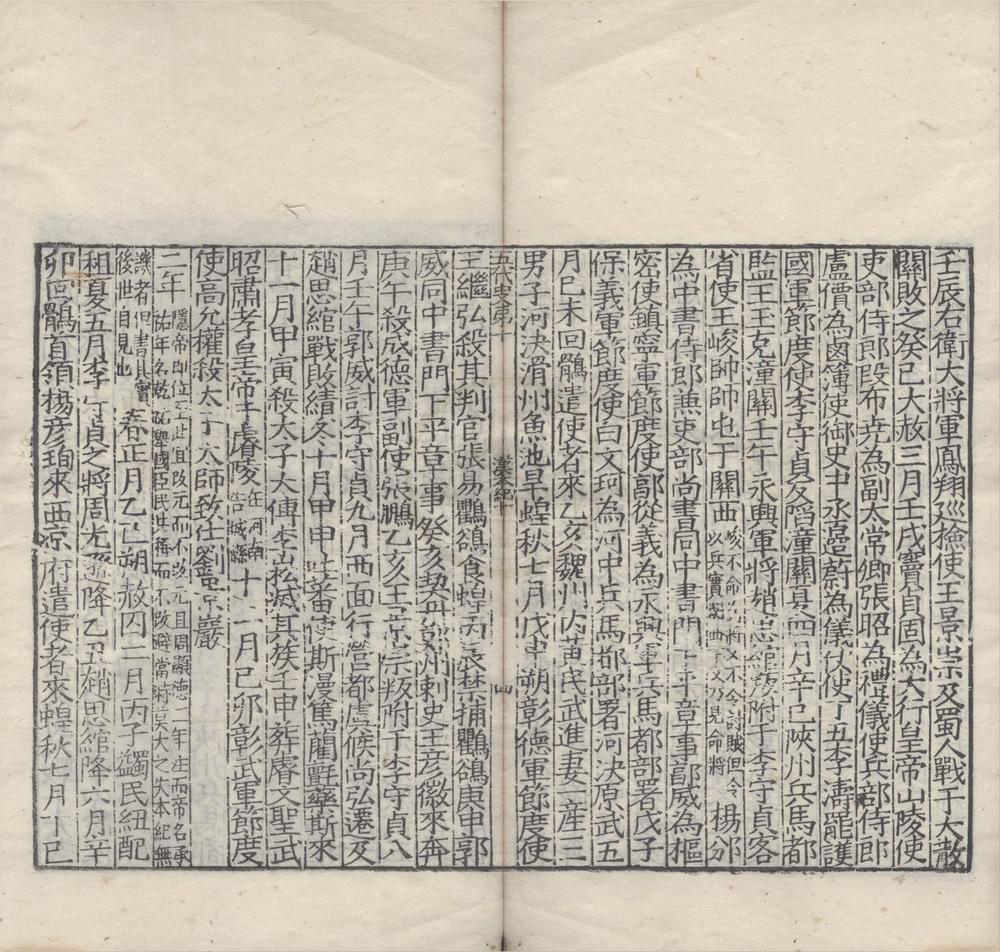 壬辰右衛大將軍鳳翔巡檢使王景崇及蜀人戰于大散
關敗之癸巳大赦三月壬戌竇貞固為大行皇帝山陵使
吏部侍郎段希堯為副太常卿張昭為禮儀使兵部侍郎
盧價為鹵簿使御史中丞邊蔚為儀仗使丁丑李濤罷護
國軍節度使李守貞反陷潼關夏四月辛巳陝州兵馬都
監王玉克潼關壬午永興軍將趙思綰叛附于李守貞客
省使王峻帥師屯于關西 峻不命以討又不令討賊但令以兵實 又乃見命將 楊邠
為中書侍郎兼吏部尚書同中書門下平章事郭威為樞
密使鎮寧軍節度使郭從義為永興軍兵馬都部署戊子
保義軍節度使白文珂為河中兵馬都部署河決原武五
月己未回鶻遣使者來乙亥魏州內黃民武進妻一產三
男子河決滑州魚池旱蝗秋七月戊申朔彰德軍節度使
五代史卷十
漢本紀十
四
王繼弘殺其判官張易鸜鵒食蝗丙辰禁捕鸜鵒庚申郭
威同中書門下平章事癸亥契丹鄚州刺史王彥徽來奔
庚午殺成德軍副使張鵬乙亥王景崇叛附于李守貞八
月壬午郭威討李守貞九月西面行營都虞候尚弘遷及
趙思綰戰敗績冬十月甲申吐蕃使斯漫篤藺氈藥斯來
十一月甲寅殺太子太傅李崧滅其族壬申葬睿文聖武
昭肅孝皇帝于睿陵 在河南告城縣 十二月己卯彰武軍節度
使高允權殺太子太師致仕劉景巖
二年 隱帝即位至此宜改元而不改元且周顯德二年注而帝名承祐年名乾祐舉國臣民共稱而不改避當時莫大之失本紀無
譏者但書其實後世自見也 春正月乙巳朔赦囚二月丙子蠲民紐配
租夏五月李守貞之將周光遜降乙丑趙思綰降六月辛
卯回鶻首領楊彥珣來西京府遣使者來蝗秋七月丁巳